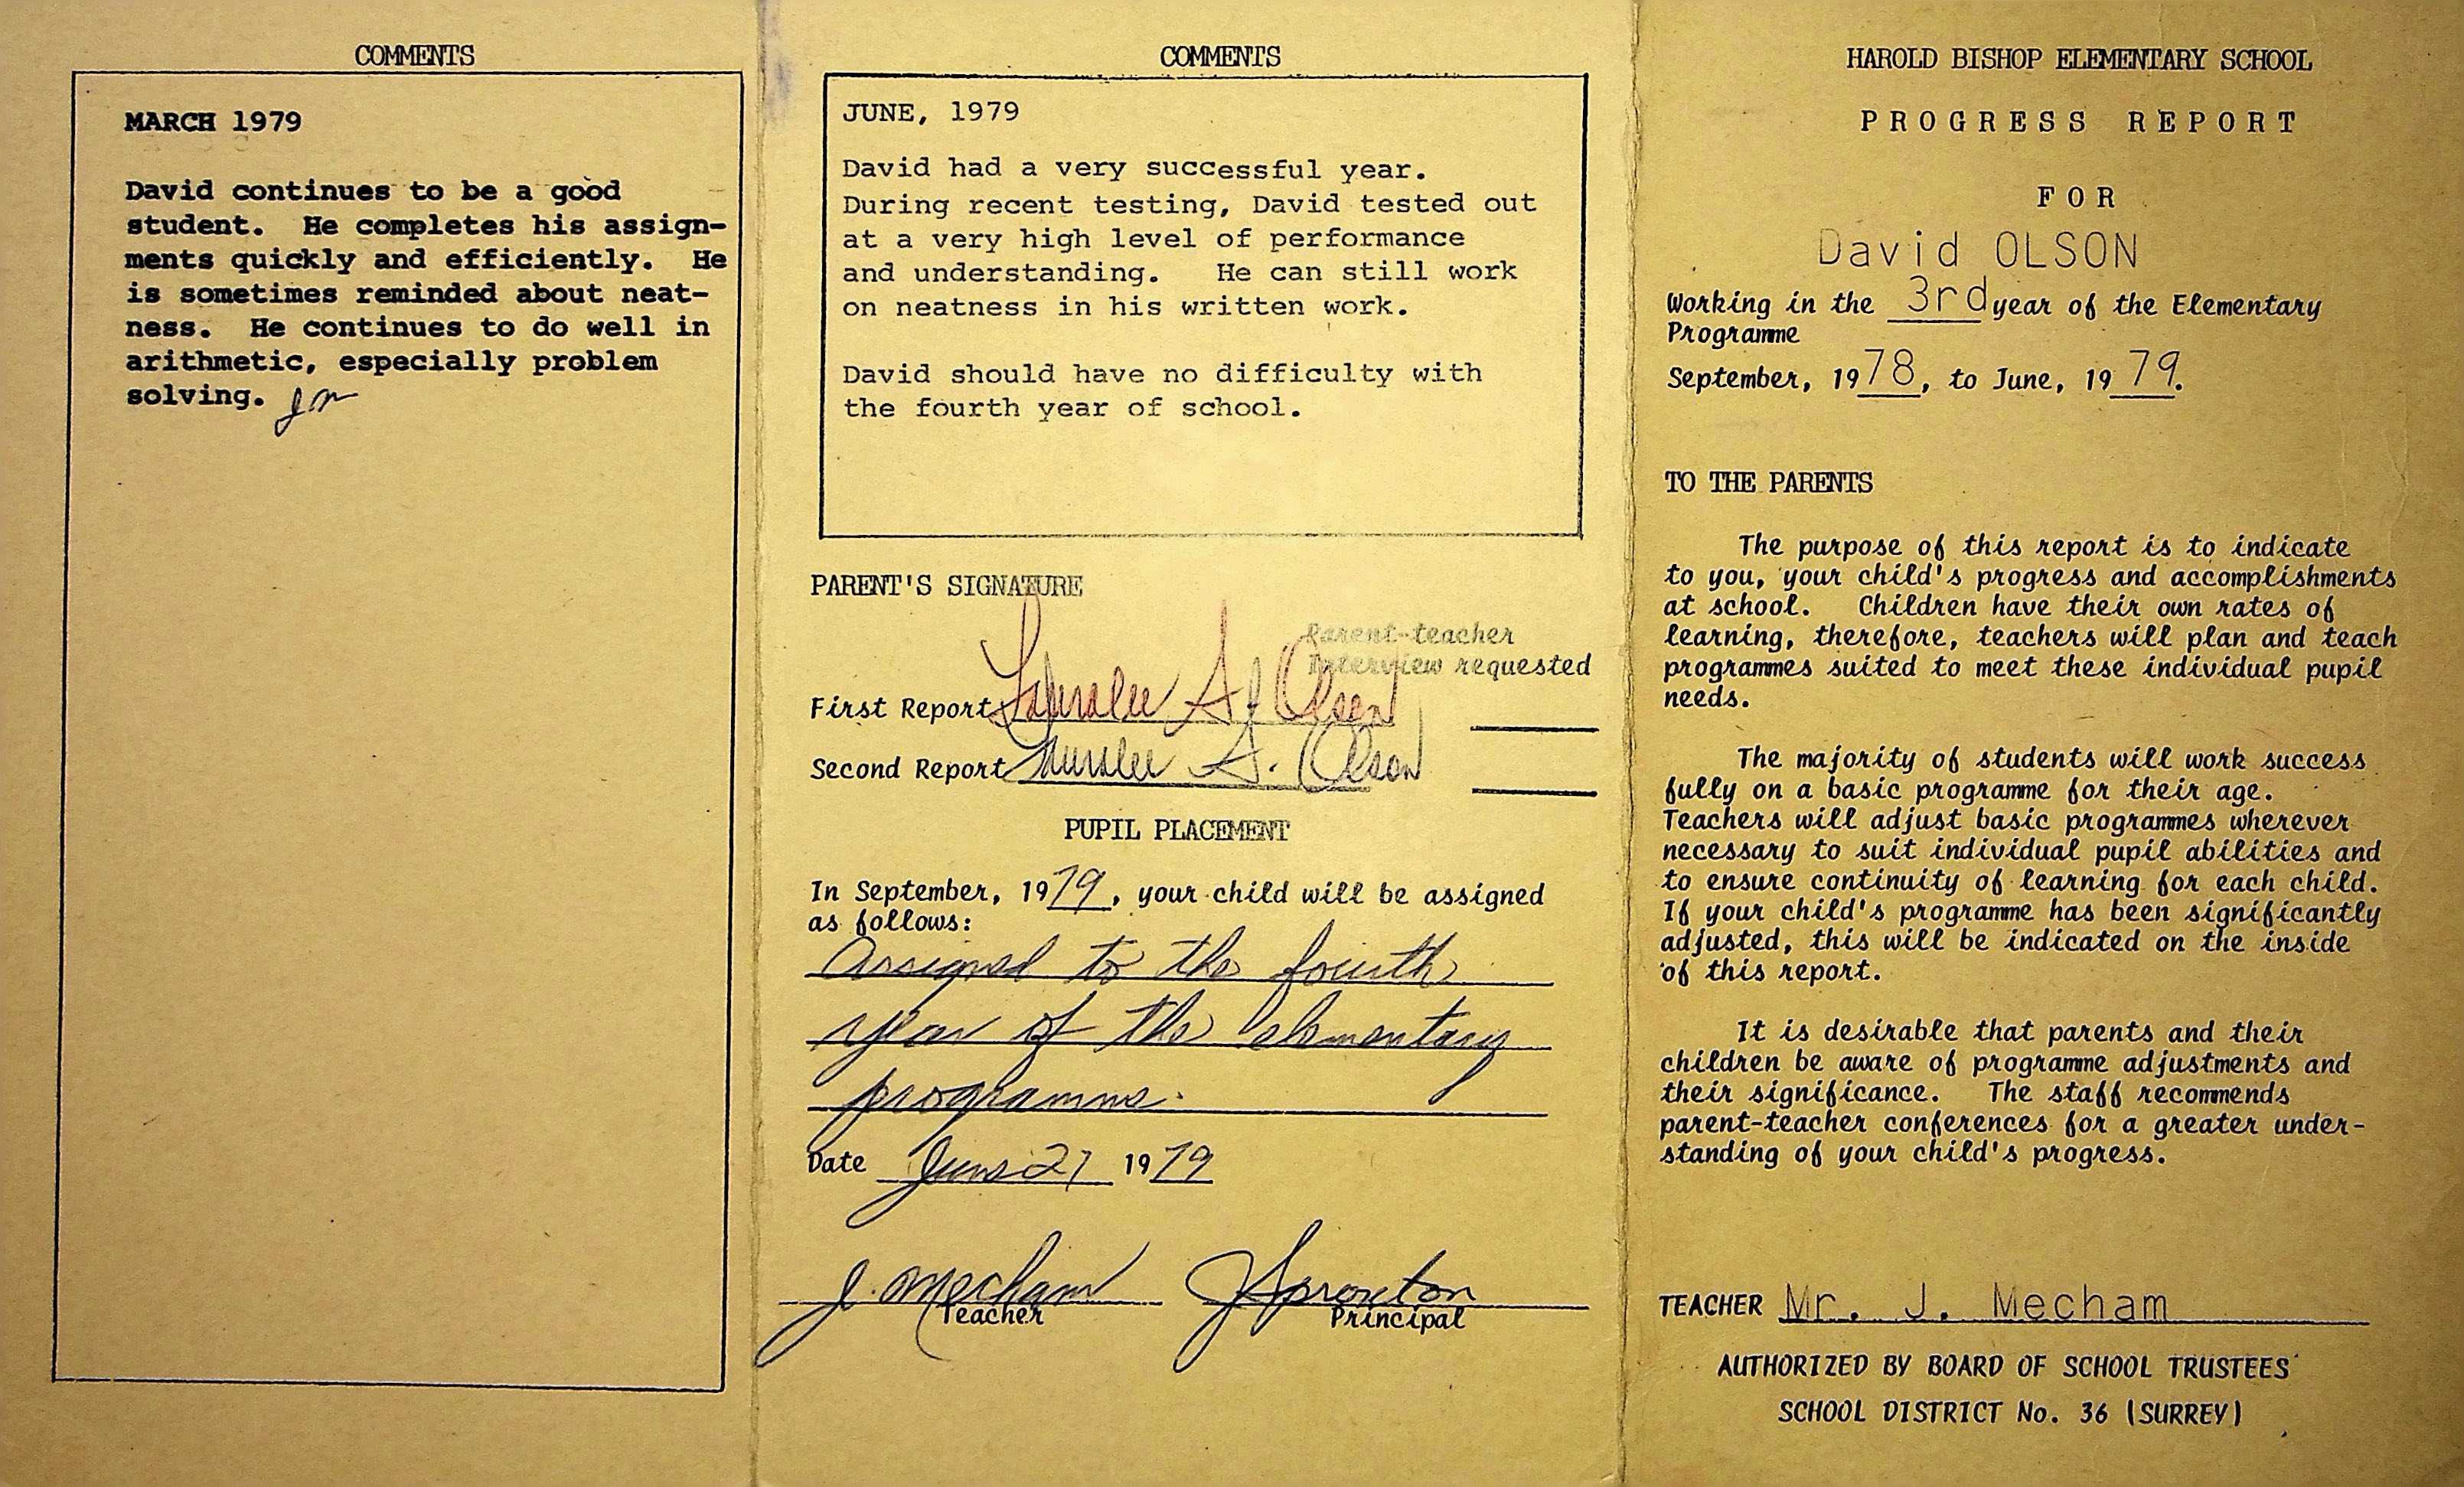 COMMENTS
MARCH 1979
David continues to be a good
student. He completes his assign-
ments quickly and efficiently. He
is sometimes reminded about neat-
ness. He continues to do well in
arithmetic, especially problem
solving. JM
COMMENTS
JUNE, 1979
David had a very successful year.
During recent testing, David tested out
at a very high level of performance
and understanding. He can still work
on neatness in his written work.
David should have no difficulty with
the fourth year of school.
PARENT'S SIGNATURE
Parent-teacher
Interview requested
First Report Lauralee A. Olson
Second Report Lauralee A. Olson
PUPIL PLACEMENT
In September, 1979, your child will be assigned
as follows:
Assigned to the fourth
year of the elementary
programme.
Date June 27 1979
J. Mecham
Teacher
Principal
HAROLD BISHOP ELEMENTARY SCHOOL
PROGRESS REPORT
FOR
David OLSON
Working in the 3rd year of the Elementary
Programme
September, 1978, to June, 1979.
TO THE PARENTS
The purpose of this report is to indicate
to you, your child's progress and accomplishments
at school. Children have their own rates of
learning, therefore, teachers will plan and teach
programmes suited to meet these individual pupil
needs.
The majority of students will work success
fully on a basic programme for their age.
Teachers will adjust basic programmes wherever
necessary to suit individual pupil abilities and
to ensure continuity of learning for each child.
If your child's programme has been significantly
adjusted, this will be indicated on the inside
of this report.
It is desirable that parents and their
children be aware of programme adjustments and
their significance. The staff recommends
parent-teacher conferences for a greater under-
standing of your child's progress.
TEACHER Mr. J. Mecham
AUTHORIZED BY BOARD OF SCHOOL TRUSTEES
SCHOOL DISTRICT No. 36 (SURREY)